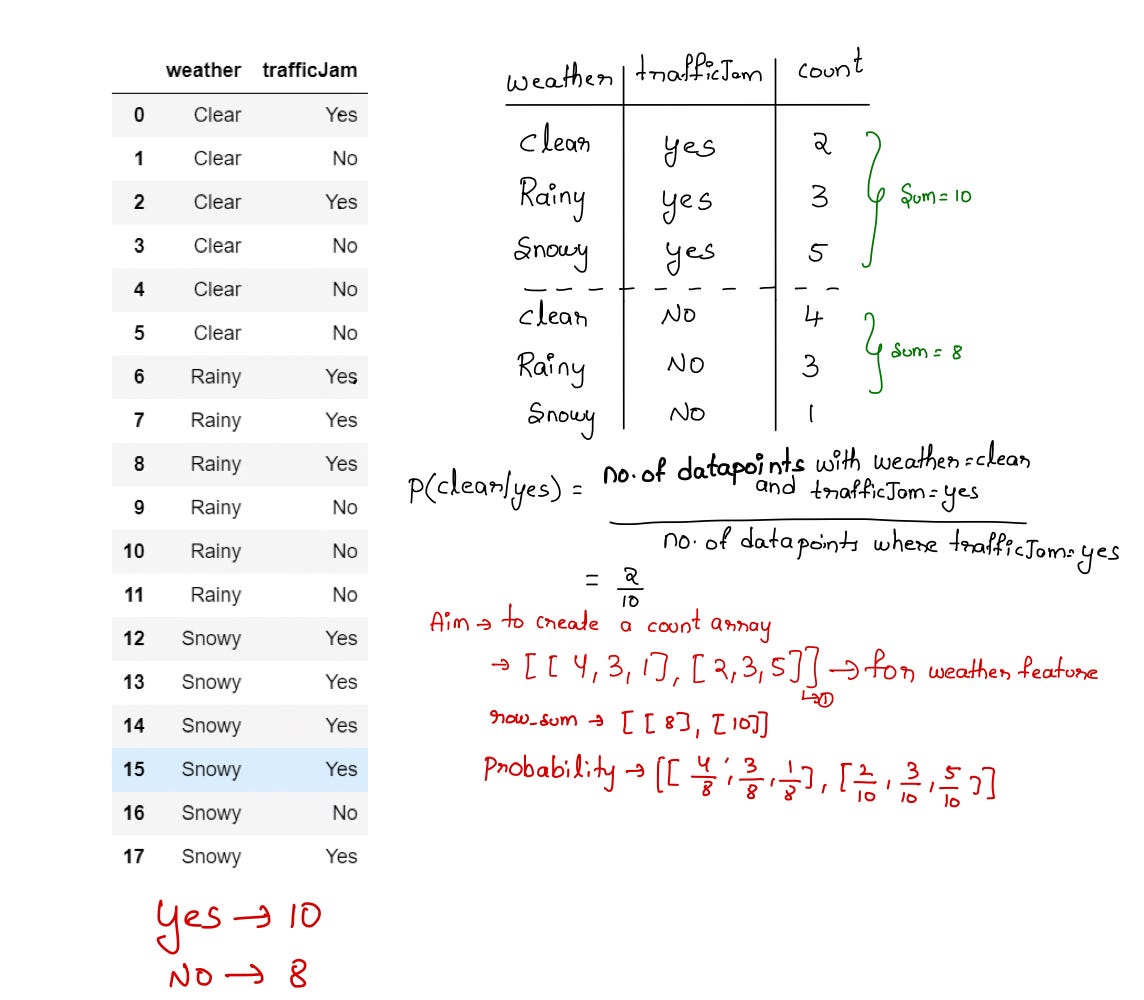 weather trafficJam
0 Clear Yes
1 Clear No
2 Clear Yes
3 Clear No
4 Clear No
5 Clear No
6 Rainy Yes
7 Rainy Yes
8 Rainy Yes
9 Rainy No
10 Rainy No
11 Rainy No
12 Snowy Yes
13 Snowy Yes
14 Snowy Yes
15 Snowy Yes
16 Snowy No
17 Snowy Yes
Yes → 10
NO → 8
weather trafficJam count
clear yes 2
Rainy yes 3
Snowy yes 5
Sum = 10
clear NO 4
Rainy NO 3
Snowy NO 1
Sum = 8
P(clear/yes) = no. of datapoints with weather=clear
and trafficJam=yes
no. of datapoints where trafficJam=yes
= 2/10
Aim → to create a count array
→ [[4,3,1], [2,3,5]] → for weather feature
↳①
row_sum → [[8], [10]]
Probability → [[4/8, 3/8, 1/8], [2/10, 3/10, 5/10]]